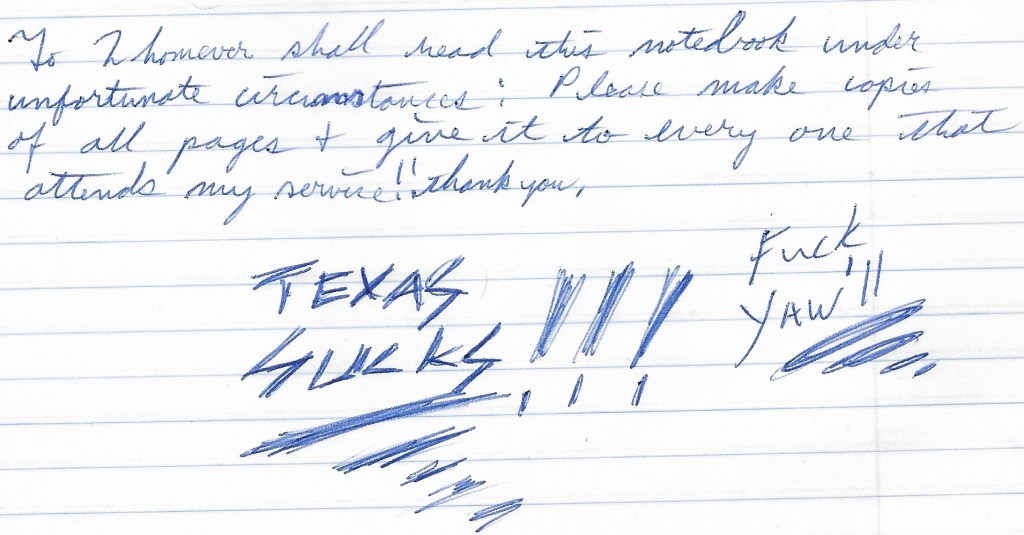 To Whomever shall read this notebook under
unfortunate circumstances: Please make copies
of all pages + give it to every one that
attends my service!! thank you,
TEXAS
SUCKS!!!
Fuck
YAW!!!